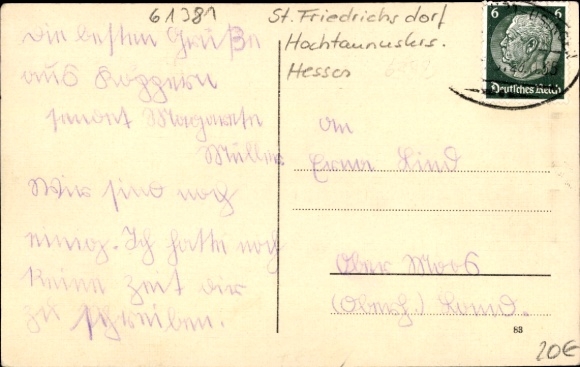 61381
St. Friedrichsdorf
Hochtaunuskrs.
Hessen
6
6
Deutsches Reich
Die besten Grüße
aus
sendet Magarete
Müller
Wir sind noch
einig. Ich hatte noch
keine Zeit dir
zu schreiben.
An
Erna Lind
Ober Moos
(Oberh.) Land.
83
20€